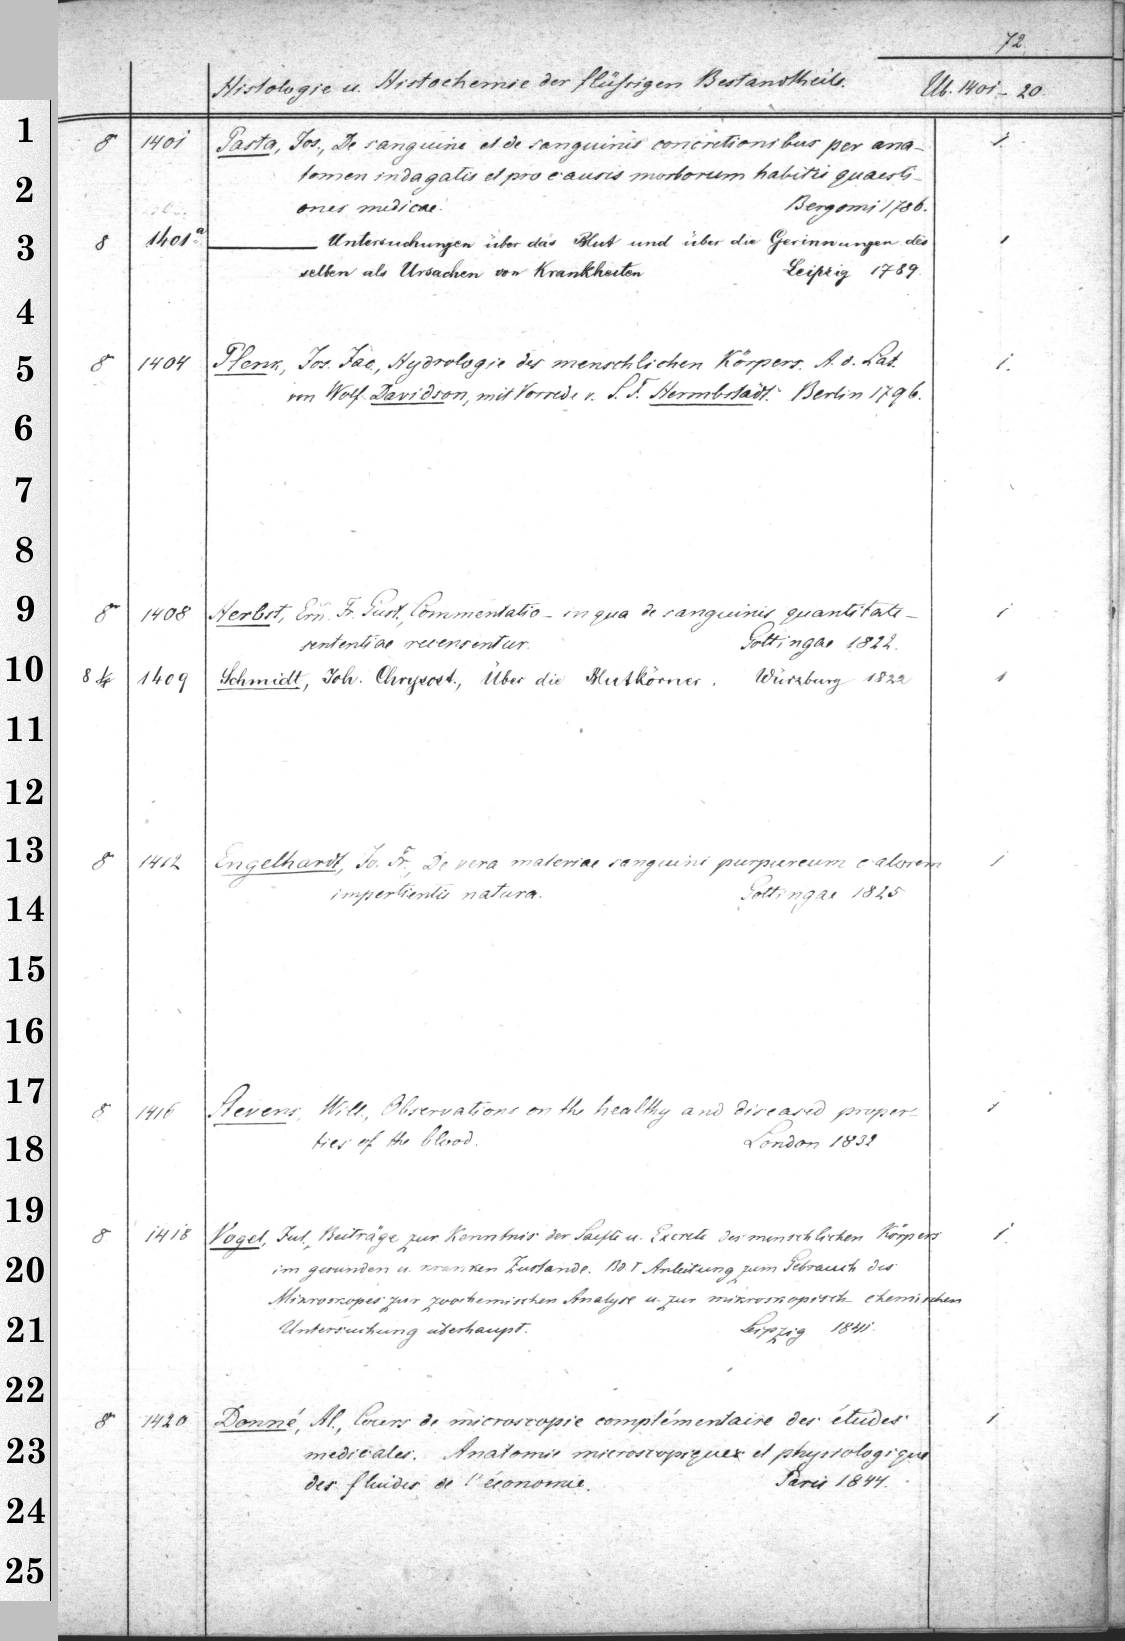 72.
Histologie u. Histochemie der flüssigen Bestandtheile. Ub. 1401-20.
1 8 1401 Pasta, Jos., De sanguine et de sanguinis concretionibus per ana- 1.
2 tomen indagatis et pro causis morborum habitis quaesti-
ones medicae. Bergomi 1786.
3 8 1401a ——— Untersuchungen über das Blut und über die Gerinnungen des 1
selben als Ursachen von Krankheiten Leipzig 1789.
4
5 8 1404 Plenk, Jos. Jac., Hydrologie des menschlichen Körpers. A. d. Lat. 1.
von Wolf Davidson, mit Vorrede v. S. F. Hermbstädt. Berlin 1796.
6
7
8
9 8 1408 Herbst, Ern. Fr. Gust., Commentatio - in qua de sanguinis quantitate - 1
sententiae recensentur. Gottingae 1822.
10 8 1409 Schmidt, Joh. Chrysost., Über die Blutkörner. Würzburg 1822 1
11
12
13 8 1412 Engelhardt, Jo. Fr., De vera materiae sanguini purpureum calorem 1
14 impertientis natura. Gottingae 1825
15
16
17 8 1416 Stevens, Will., Observations on the healthy and diseased proper- 1
18 ties of the blood. London 1832
19 8 1418 Vogel, Jul., Beiträge zur Kenntnis der Saefte u. Excrete des menschlichen Körpers 1.
20 im gesunden u. kranken Zustande. Bd. I Anleitung zum Gebrauch des
Mikroskopes zur zoochemischen Analyse u. zur mikroskopisch-chemischen
21 Untersuchung überhaupt. Leipzig 1841.
22 8 1420 Donné, Al., Cours de microscopie complémentaire des études 1.
23 medicales. Anatomie microscopique et physiologique
des fluides de l'économie. Paris 1844.
24
25